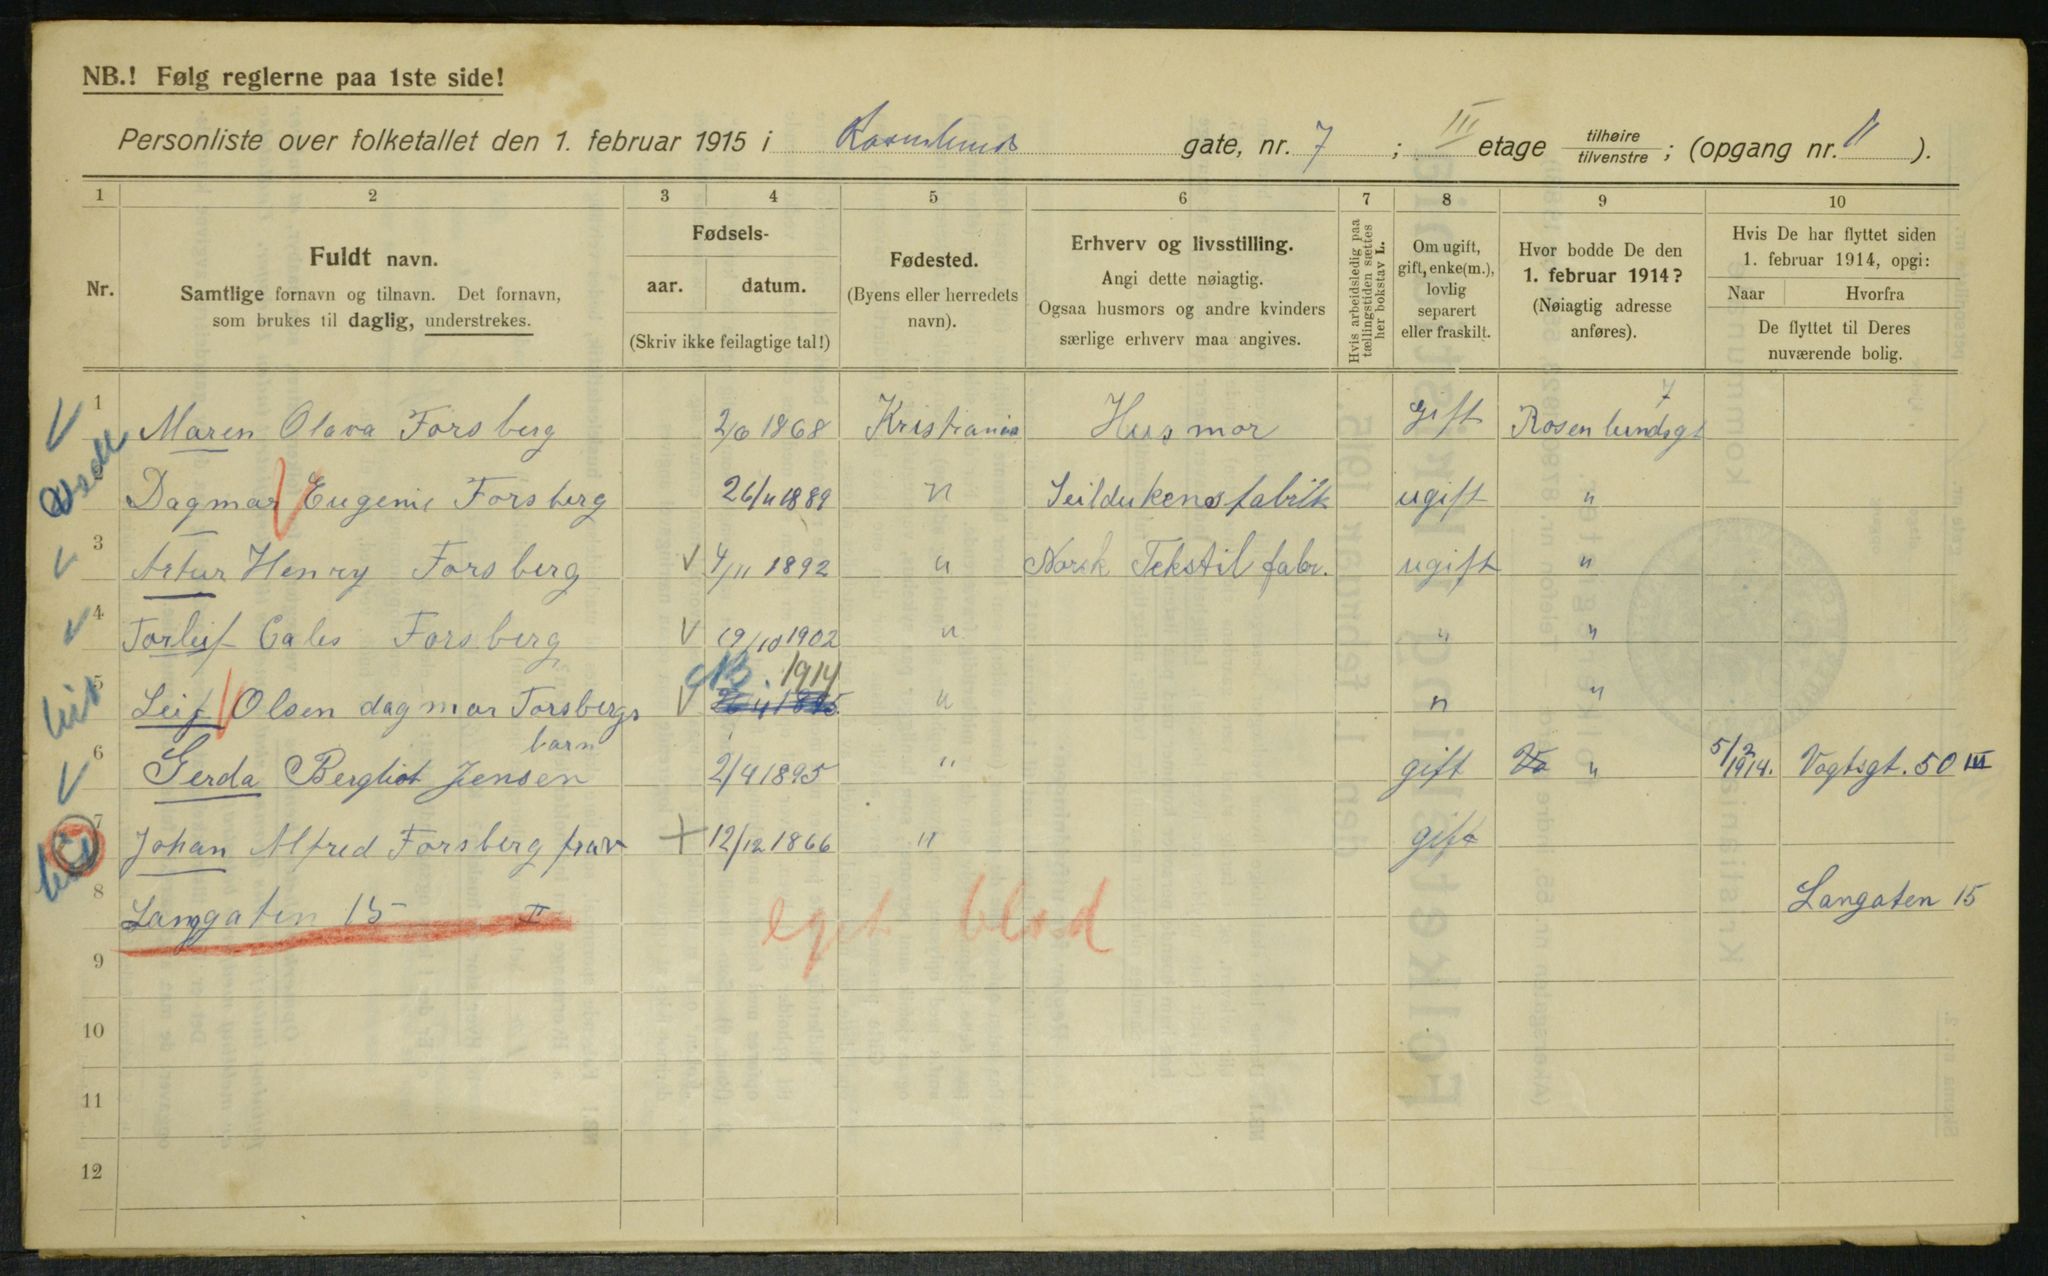 NB.! Følg reglerne paa 1ste side!
Personliste over folketallet den 1. februar 1915 i Rosenlunds gate, nr. 7; III etage tilhøire / tilvenstre; (opgang nr. II).
1 2 3 4 5 6 7 8 9 10
Nr.
Fuldt navn.
Samtlige fornavn og tilnavn. Det fornavn,
som brukes til daglig, understrekes.
Fødsels-
aar. datum.
(Skriv ikke feilagtige tal!)
Fødested.
(Byens eller herredets
navn).
Erhverv og livsstilling.
Angi dette nøiagtig.
Ogsaa husmors og andre kvinders
særlige erhverv maa angives.
Hvis arbeidsledig paa
tællingstiden sættes
her bokstav L.
Om ugift,
gift, enke(m.),
lovlig
separert
eller fraskilt.
Hvor bodde De den
1. februar 1914?
(Nøiagtig adresse
anføres).
Hvis De har flyttet siden
1. februar 1914, opgi:
Naar Hvorfra
De flyttet til Deres
nuværende bolig.
1 Maren Olava Forsberg 2/6 1868 Kristiania Husmor gift Rosenlundsgt 7
Dagmar Eugenie Forsberg 26/11 1889 " Seildukensfabrik ugift "
3 Artur Henry Forsberg 4/11 1892 " Norsk Tekstil fabr. ugift "
4 Torleif Cales Forsberg 19/10 1902 " " "
1914
5 Leif Olsen dagmar Forsbergs " " "
barn
6 Gerda Bergliot Jensen 2/4 1895 " gift " 5/2 1914. Vogtsgt. 50 III
7 Johan Alfred Forsberg frav 12/12 1866 " gift
8 Langgaten 15 II Langaten 15
eget blad
9
10
11
12